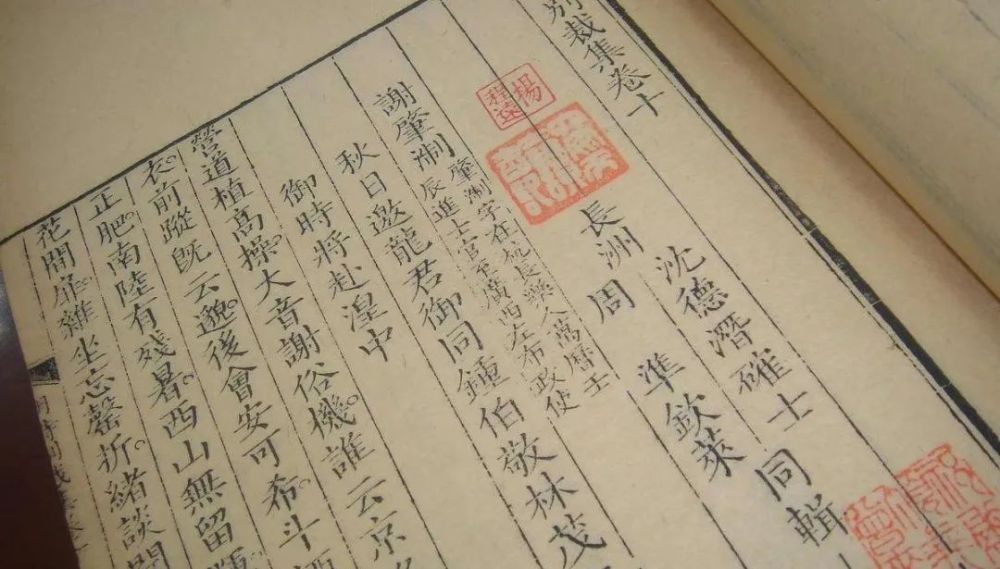 別裁集卷十
沈德潛確士同輯
長洲周準欽萊
楊程遠
謝肇淛
肇淛字在杭長樂人萬曆壬
辰進士官至廣西左布政使
秋日邀龍君御同鍾伯敬林茂
御時將赴湟中
營道植高操。大音謝俗機。誰云京
衣。前蹤既云邈。後會安可希。斗
正肥。南陸有殘暑。西山無留
花間扉。雜坐忘罄折。緒談間